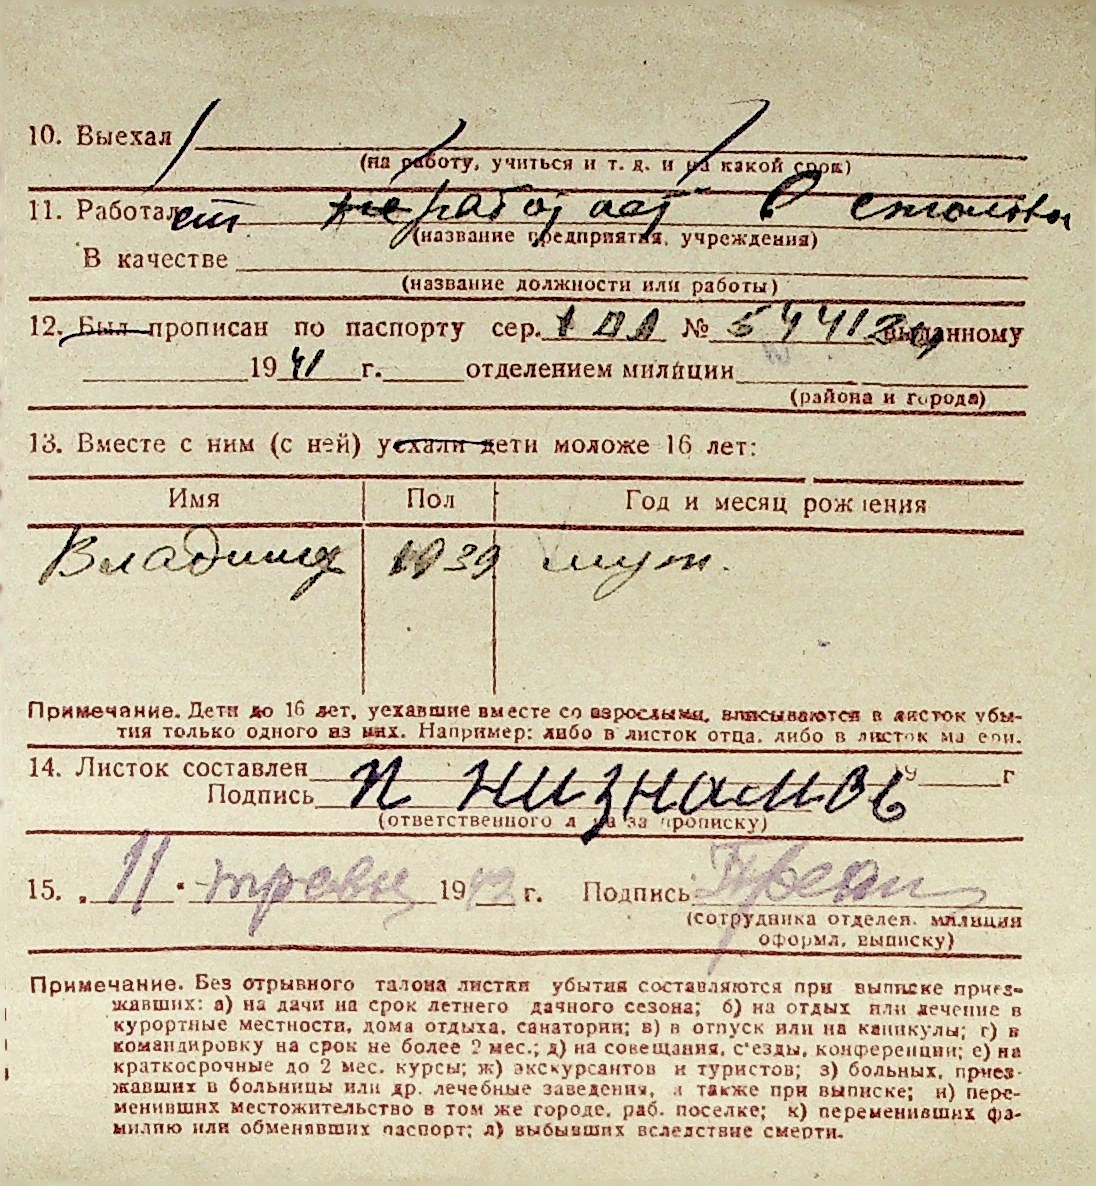 10. Выехал
(на работу, учиться и т. д. и на какой срок)
11. Работает не работает в столовы
(название предприятия, учреждения)
В качестве
(название должности или работы)
12. Был прописан по паспорту сер. № 544124 выданному
1941 г. отделением милиции
(района и города)
13. Вместе с ним (с ней) уехали дети моложе 16 лет:
Имя Пол Год и месяц рождения
Владимир 1939 муж.
Примечание. Дети до 16 лет, уехавшие вместе со взрослыми, вписываются в листок убы-
тия только одного из них. Например: либо в листок отца, либо в листок матери.
14. Листок составлен 19 г
Подпись
(ответственного лица за прописку)
15. „11" травня 1942 г. Подпись
(сотрудника отделен. милиции
оформл. выписку)
Примечание. Без отрывного талона листки убытия составляются при выписке приез-
жавших: а) на дачи на срок летнего дачного сезона; б) на отдых или лечение в
курортные местности, дома отдыха, санатории; в) в отпуск или на каникулы; г) в
командировку на срок не более 2 мес.; д) на совещания, съезды, конференции; е) на
краткосрочные до 2 мес. курсы; ж) экскурсантов и туристов; з) больных, приез-
жавших в больницы или др. лечебные заведения, а также при выписке; и) пере-
менивших местожительство в том же городе, раб. поселке; к) переменивших фа-
милию или обменявших паспорт; л) выбывших вследствие смерти.